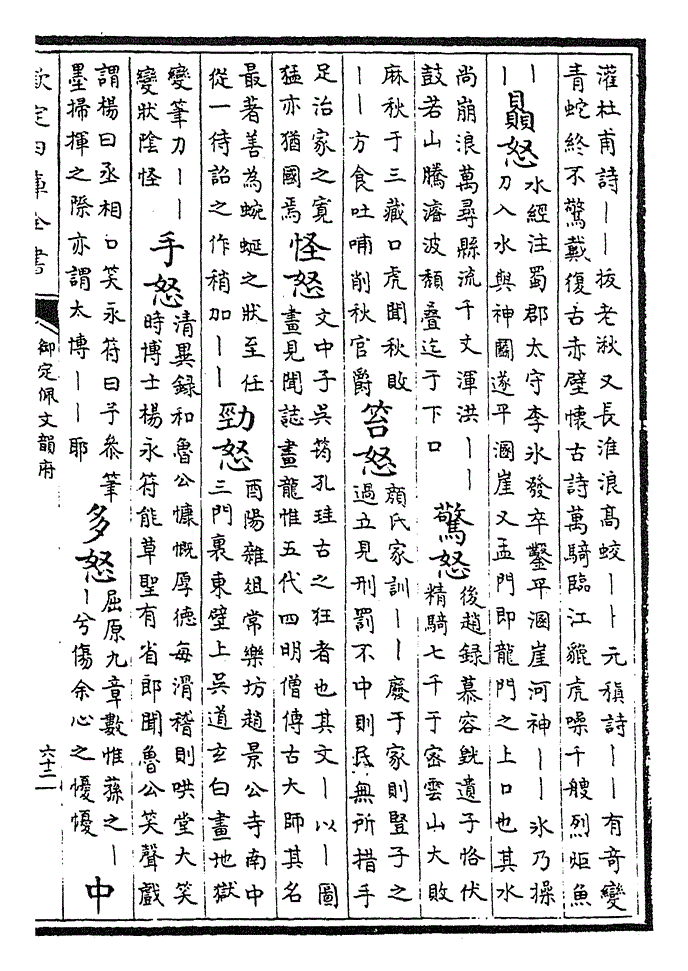 灌杜甫詩丨丨拔老湫又長淮浪高蛟丨丨元稹詩丨丨有竒變
青蛇終不驚戴復古赤壁懷古詩萬騎臨江貔虎噪千艘烈炬魚
丨
丨
贔怒
水經注蜀郡太守李氷發卒鑿平溷崖河神丨丨氷乃操
刀入水與神鬬遂平溷崖又孟門即龍門之上口也其水
尚崩浪萬尋縣流千丈渾洪丨丨
鼓若山騰濬波頽疊迄于下口
驚怒
後趙録慕容銑遣子恪伏
精騎七千于宻雲山大敗
麻秋于三藏口虎聞秋敗
丨丨方食吐哺削秋官爵
笞怒
顔氏家訓丨丨廢于家則豎子之
過立見刑罰不中則民無所措手
足治家之寛
猛亦猶國焉
怪怒
文中子吳筠孔珪古之狂者也其文丨以丨圖
畫見聞誌畫龍惟五代四明僧傳古大師其名
最著善為蜿蜒之狀至任
從一待詔之作稍加丨丨
勁怒
酉陽雜俎常樂坊趙景公寺南中
三門裏東壁上吳道玄白畫地獄
變筆力丨丨
變狀陰怪
手怒
清異録和魯公慷慨厚德每滑稽則哄堂大笑
時博士楊永符能草聖有省郎聞魯公笑聲戲
謂楊曰丞相口笑永符曰予叅筆
墨掃揮之際亦謂太博丨丨耶
多怒
屈原九章數惟蓀之丨
丨兮傷余心之懮懮
中
欽定四庫全書
御定佩文韻府
六十二